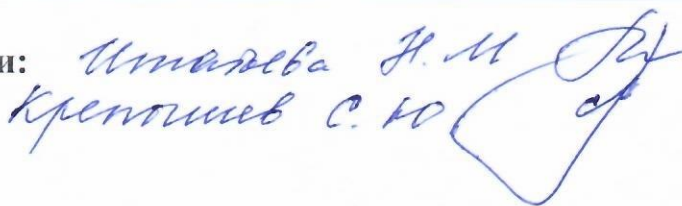 и: Итатьева Н. М
Крепышев С. Ю